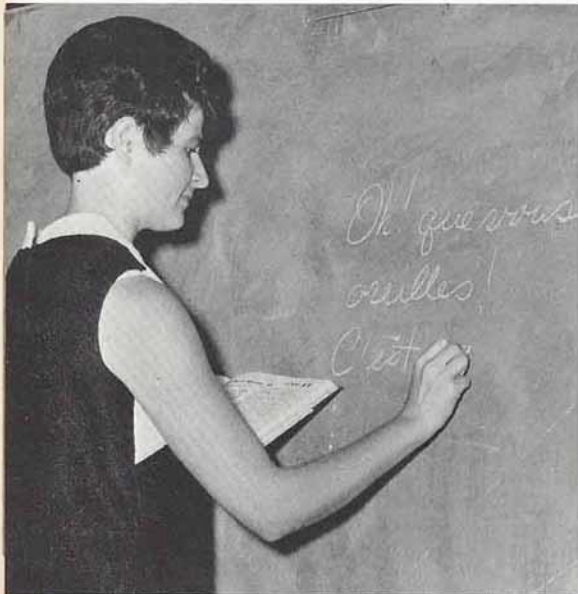 Oh! que vous
oreilles!
C'est